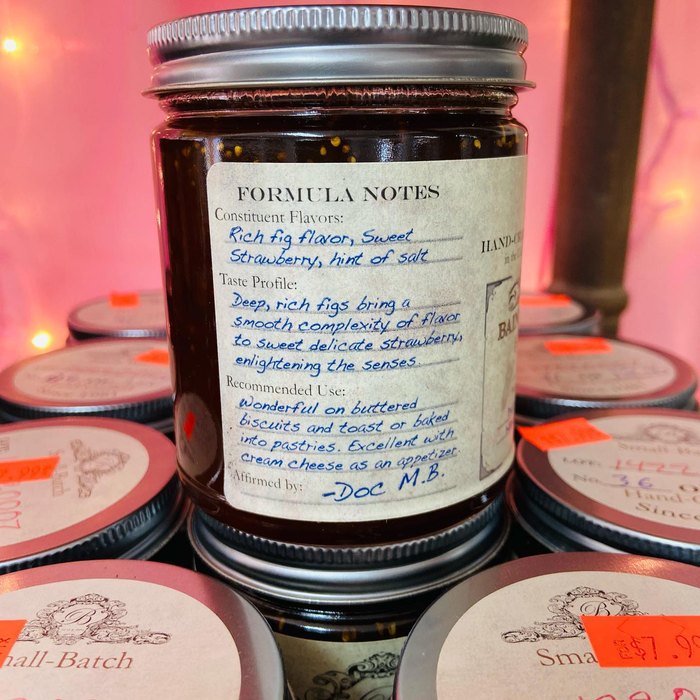 FORMULA NOTES
Constituent Flavors:
Rich fig flavor, Sweet
Strawberry, hint of salt
Taste Profile:
Deep, rich figs bring a
smooth complexity of flavor
to sweet delicate strawberry,
enlightening the senses.
Recommended Use:
Wonderful on buttered
biscuits and toast or baked
into pastries. Excellent with
cream cheese as an appetizer.
Affirmed by: -Doc M.B.
HAND-C
in the
BAI
Small-Batch
No. 36
Hand-
Sinc
B
mall-Batch
B
Sma
$7.9